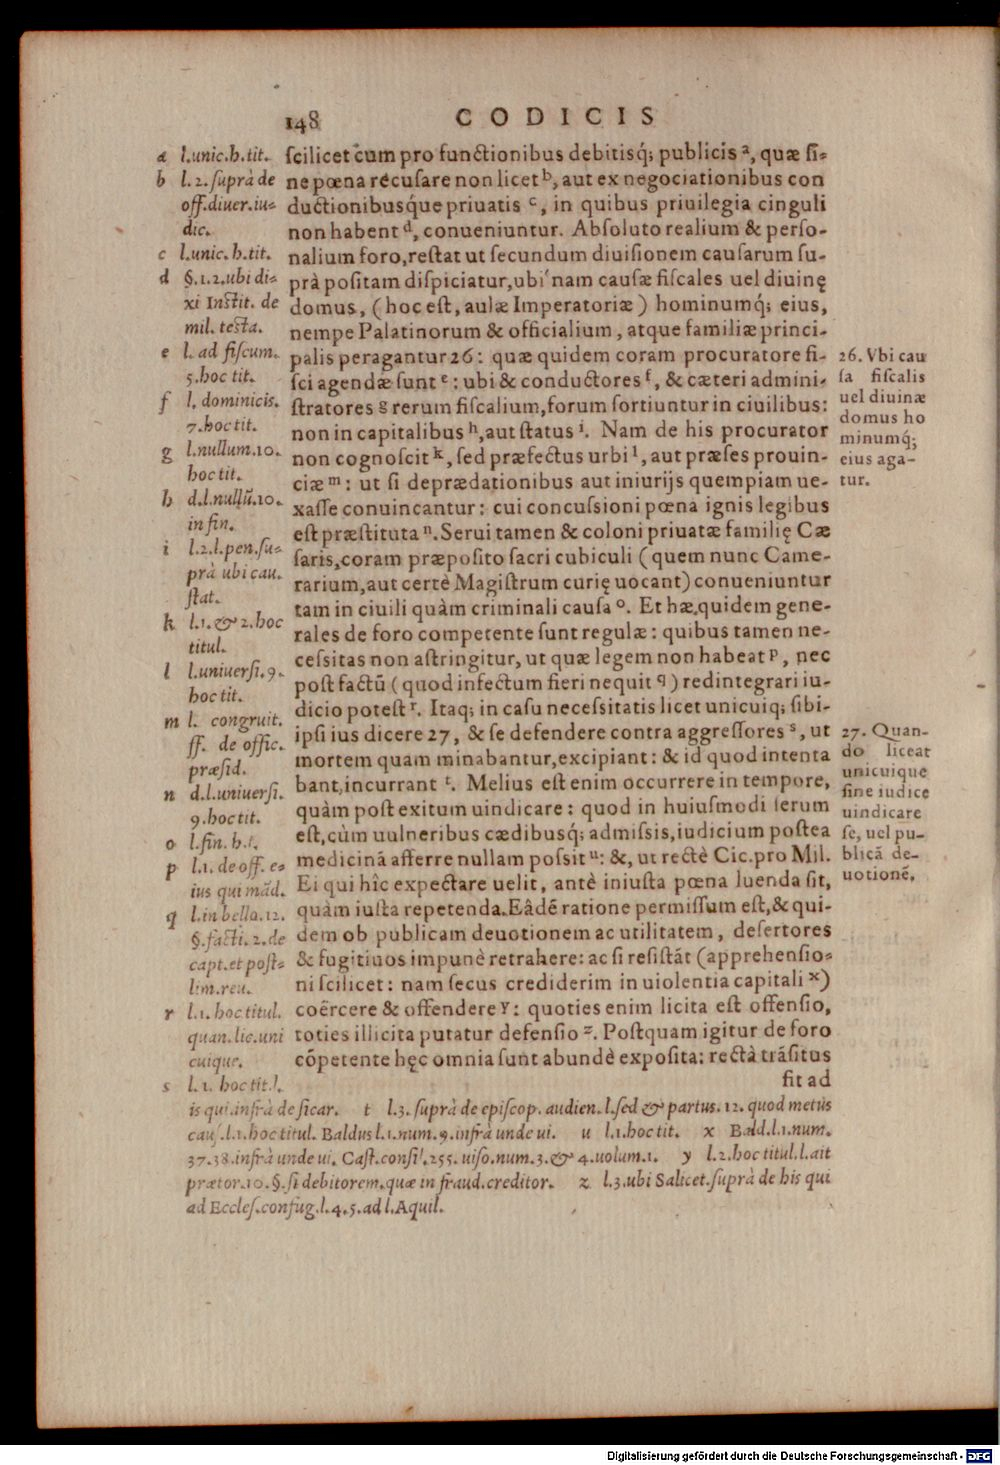 148 CODICIS
ſcilicet cum pro functionibus debitisq́; publicis ᵃ, quæ ſi-
ne pœna recuſare non licet ᵇ, aut ex negociationibus con
ductionibusq́ue priuatis ᶜ, in quibus priuilegia cinguli
non habent ᵈ, conueniuntur. Abſoluto realium & perſo-
nalium foro, reſtat ut ſecundum diuiſionem cauſarum ſu-
prà poſitam diſpiciatur, ubi nam cauſæ fiſcales uel diuinę
domus, (hoc eſt, aulæ Imperatoriæ) hominumq́; eius,
nempe Palatinorum & officialium, atque familiæ princi-
palis peragantur 26: quæ quidem coram procuratore fi-
ſci agendæ ſunt ᵉ: ubi & conductores ᶠ, & cæteri admini-
ſtratores ᵍ rerum fiſcalium, forum ſortiuntur in ciuilibus:
non in capitalibus ʰ, aut ſtatus ⁱ. Nam de his procurator
non cognoſcit ᵏ, ſed præfectus urbi ˡ, aut præſes prouin-
ciæ ᵐ: ut ſi deprædationibus aut iniurijs quempiam ue-
xaſſe conuincantur: cui concuſsioni pœna ignis legibus
eſt præſtituta ⁿ. Serui tamen & coloni priuatæ familię Cæ
ſaris, coram præpoſito ſacri cubiculi (quem nunc Came-
rarium, aut certè Magiſtrum curię uocant) conueniuntur
tam in ciuili quàm criminali cauſa ᵒ. Et hæ quidem gene-
rales de foro competente ſunt regulæ: quibus tamen ne-
ceſsitas non aſtringitur, ut quæ legem non habeat ᵖ, nec
poſt factū (quod infectum fieri nequit q) redintegrari iu-
dicio poteſt ʳ. Itaq; in caſu neceſsitatis licet unicuiq; ſibi-
ipſi ius dicere 27, & ſe defendere contra aggreſſores ˢ, ut
mortem quam minabantur, excipiant: & id quod intenta
bant, incurrant ᵗ. Melius eſt enim occurrere in tempore,
quàm poſt exitum uindicare: quod in huiuſmodi ſerum
eſt, cùm uulneribus cædibusq́; admiſsis, iudicium poſtea
medicinā afferre nullam poſsit ᵘ: &, ut rectè Cic. pro Mil.
Ei qui hîc expectare uelit, antè iniuſta pœna luenda ſit,
quàm iuſta repetenda. Eâdē ratione permiſſum eſt, & qui-
dem ob publicam deuotionem ac utilitatem, deſertores
& fugitiuos impunè retrahere: ac ſi reſiſtāt (apprehenſio-
ni ſcilicet: nam ſecus crediderim in uiolentia capitali ˣ)
coërcere & offendere ʸ: quoties enim licita eſt offenſio,
toties illicita putatur defenſio ᶻ. Poſtquam igitur de foro
cōpetente hęc omnia ſunt abundè expoſita: rectà trāſitus
fit ad
a l. unic. h. tit.
b l. 2. ſuprà de
off. diuer. iu-
dic.
c l. unic. h. tit.
d §. 1. 2. ubi di-
xi Inſtit. de
mil. teſta.
e l. ad fiſcum.
5. hoc tit.
f l. dominicis.
7. hoc tit.
g l. nullum. 10.
hoc tit.
h d. l. nullū. 10.
in fin.
i l. 2. l. pen. ſu-
prà ubi cau.
ſtat.
k l. 1. & 2. hoc
titul.
l l. uniuerſi. 9.
hoc tit.
m l. congruit.
ff. de offic.
præſid.
n d. l. uniuerſi.
9. hoc tit.
o l. fin. h. t.
p l. 1. de off. e-
ius qui mād.
q l. in bello. 12.
§. facti. 2. de
capt. et poſt-
lim. reu.
r l. 1. hoc titul.
quan. lic. uni
cuique.
s l. 1. hoc tit. l.
is qui. infrà de ſicar. t l. 3. ſuprà de epiſcop. audien. l. ſed & partus. 12. quod metus
cauſ. l. 1. hoc titul. Baldus l. 1. num. 9. infrà unde ui. u l. 1. hoc tit. x Bald. l. 1. num.
37. 38. infrà unde ui. Caſt. conſil. 255. uiſo. num. 3. & 4. uolum. 1. y l. 2. hoc titul. l. ait
prætor. 10. §. ſi debitorem. quæ in fraud. creditor. z l. 3. ubi Salicet. ſuprà de his qui
ad Eccleſ. confug. l. 4. 5. ad l. Aquil.
26. Vbi cau
ſa fiſcalis
uel diuinæ
domus ho
minumq́;
eius aga-
tur.
27. Quan-
do liceat
unicuique
ſine iudice
uindicare
ſe, uel pu-
blicā de-
uotionē.
Digitalisierung gefördert durch die Deutsche Forschungsgemeinschaft - DFG